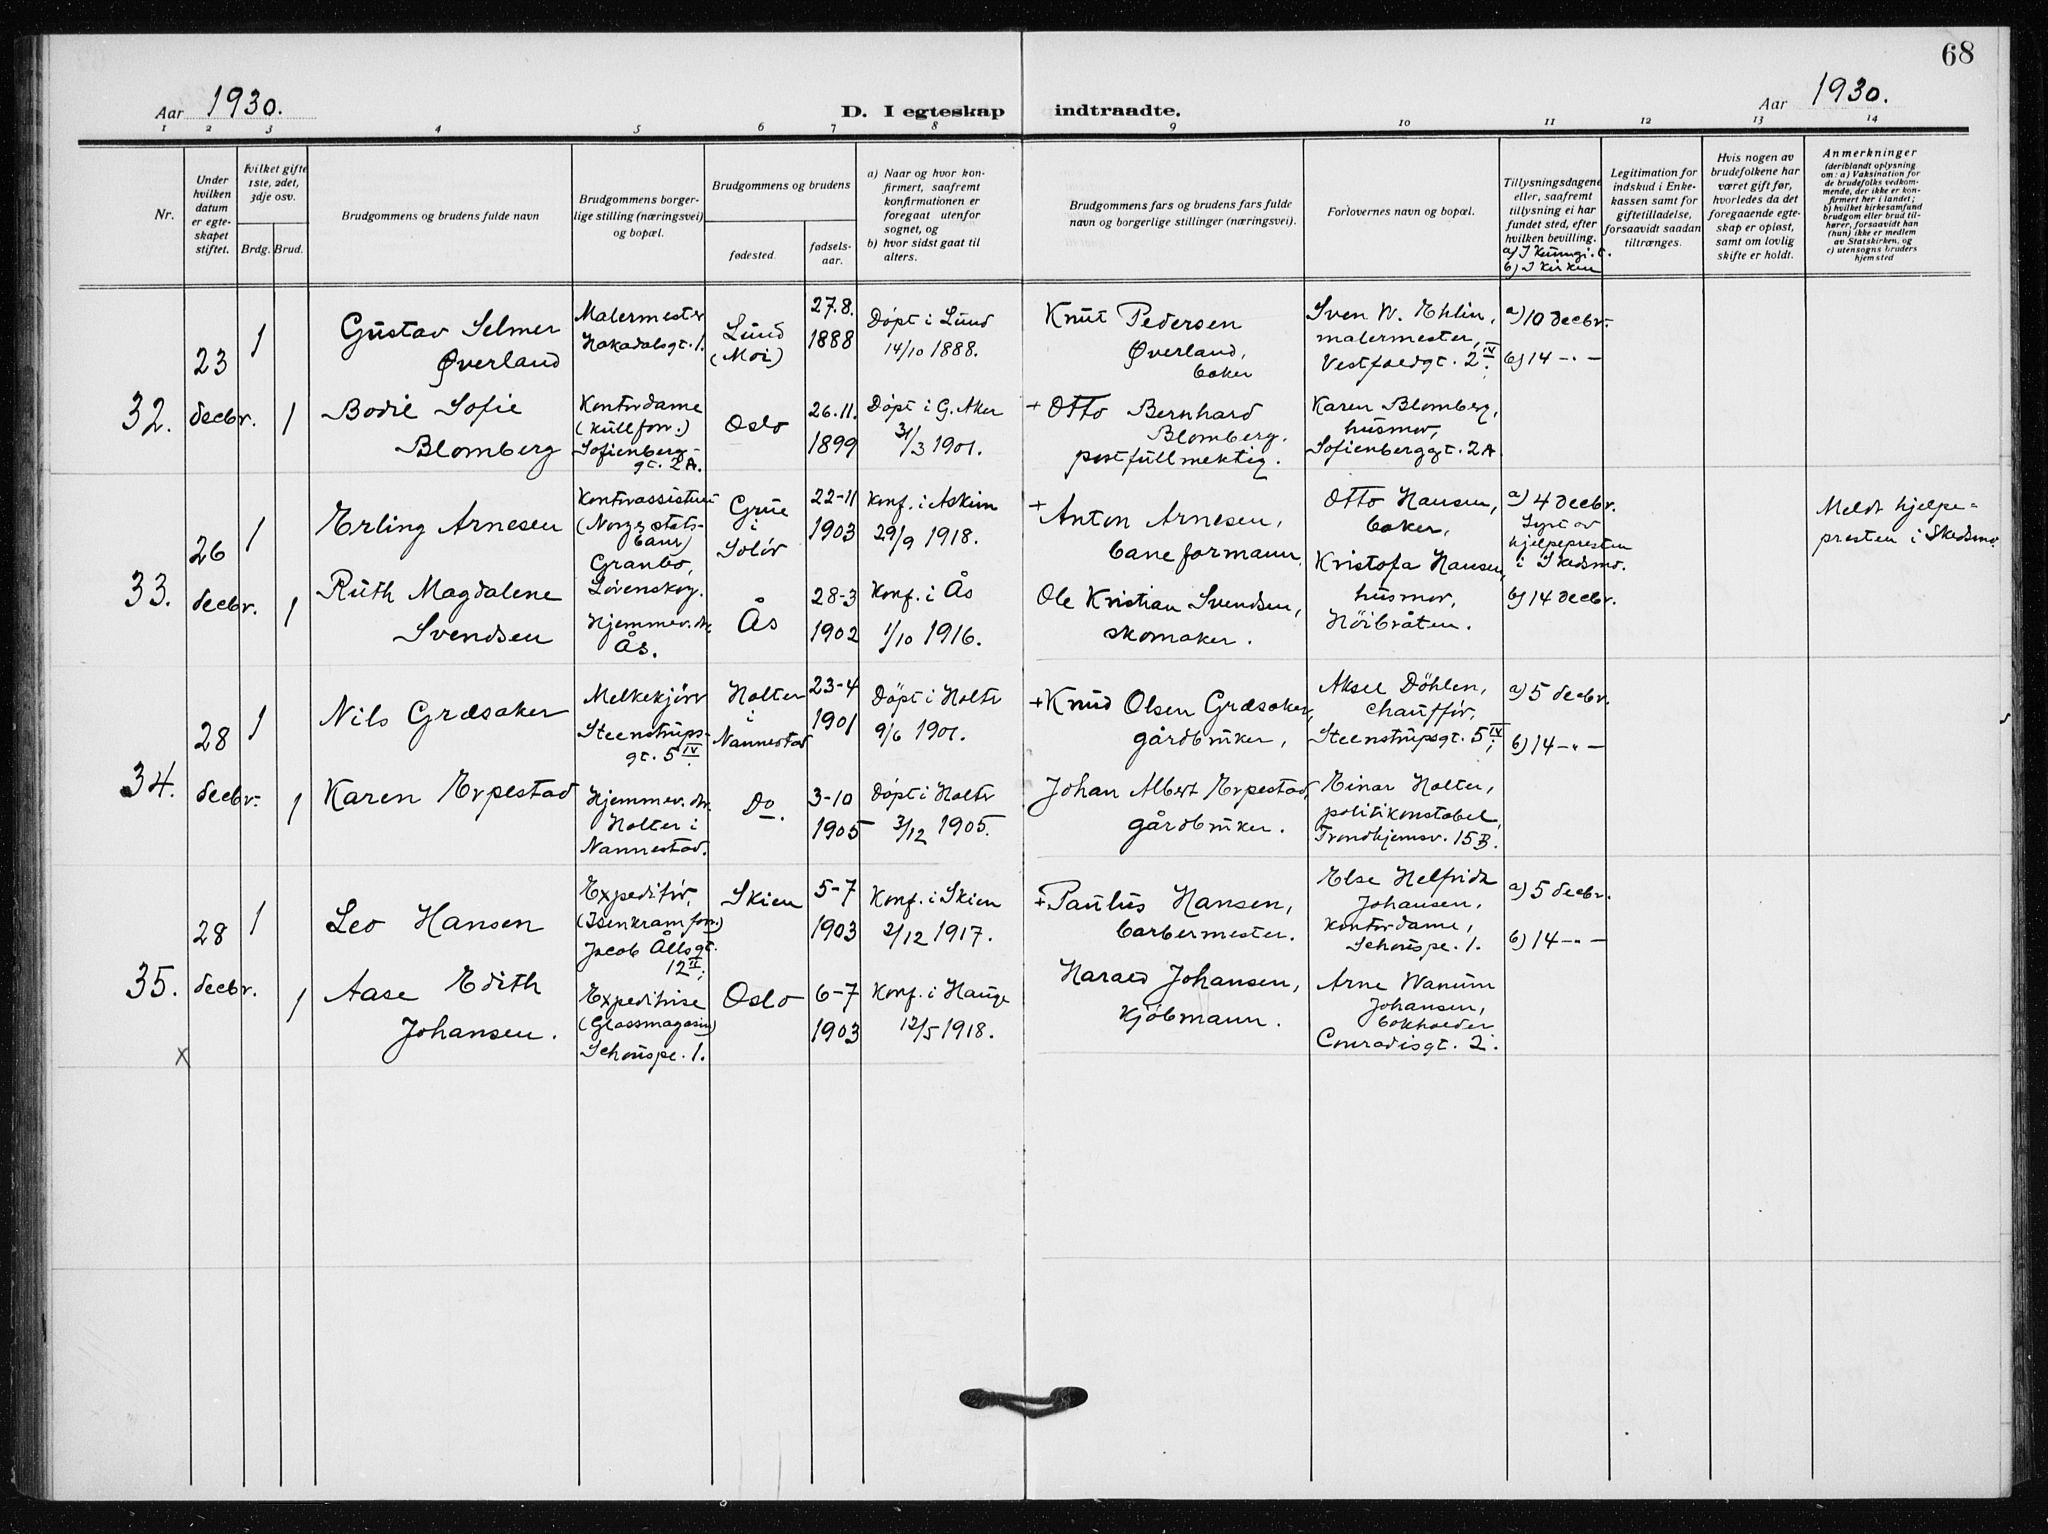 68
Aar 1930.
D. I egteskap indtraadte.
Aar 1930.
1 2 3 4 5 6 7 8 9 10 11 12 13 14
Nr.
Under hvilken datum er egteskapet stiftet.
Hvilket gifte 1ste, 2det, 3dje osv.
Brdg. Brud.
Brudgommens og brudens fulde navn
Brudgommens borgerlige stilling (næringsvei) og bopæl.
Brudgommens og brudens
fødested.
fødselsaar.
a) Naar og hvor konfirmert, saafremt konfirmationen er foregaat utenfor sognet, og
b) hvor sidst gaat til alters.
Brudgommens fars og brudens fars fulde navn og borgerlige stillinger (næringsvei).
Forlovernes navn og bopæl.
Tillysningsdagene eller, saafremt tillysning ei har fundet sted, efter hvilken bevilling.
b) I kirken
Legitimation for indskud i Enkekassen samt for giftetilladelse, forsaavidt saadan tiltrænges.
Hvis nogen av brudefolkene har været gift før, hvorledes da det foregaaende egteskap er opløst, samt om lovlig skifte er holdt.
Anmerkninger
(deriblandt oplysning om: a) Vaksination for de brudefolks vedkommende, der ikke er konfirmert her i landet;
b) hvilket kirkesamfund brudgom eller brud tilhører, forsaavidt han (hun) ikke er medlem av Statskirken, og
c) utensogns bruders hjemsted
32.
23
decbr.
1
Gustav Selmer
Øverland
Malermester
Hakadalsgt. 1.
Lund
(Moi)
27.8.
1888
Døpt i Lund
14/10 1888.
Knut Pedersen
Øverland,
baker
Sven W. Ehlin,
malermester,
Vestfoldgt. 2 IV;
a) 10 decbr.
b) 14 -"-
1
Bodil Sofie
Blomberg
Kontordame
(kullforr.)
Sofienberg-
gt. 2A.
Oslo
26.11.
1899
Døpt i G. Aker
31/3 1901.
+ Otto Bernhard
Blomberg.
postfullmektig.
Karen Blomberg,
husmor,
Sofienberggt. 2A
33.
26
decbr.
1
Erling Arnesen
Kontorassistent
(Norges stats-
baner)
Granbo,
Lørenskog.
Grue
i
Solør
22-11
1903
Konf. i Askim
29/9 1918.
+ Anton Arnesen,
baneformann.
Otto Hansen,
baker,
Kristofa Hansen,
husmor,
Höibråten.
a) 4 decbr.
Lyst av
hjelpepresten
i Skedsmo.
b) 14 decbr.
Meldt hjelpe=
presten i Skedsmo.
1
Ruth Magdalene
Svendsen
Hjemmev. dr.
Ås.
Ås
28-3
1902
Konf. i Ås
1/10 1916.
Ole Kristian Svendsen,
skomaker.
34.
28
decbr.
1
Nils Græsaker
Melkekjörer
Steenstrups-
gt. 5 IV
Holter
i
Nannestad
23-4
1901
Döpt i Holter
9/6 1901.
+ Knud Olsen Græsaker,
gårdbruker,
Aksel Döhlen,
chauffør,
Steenstrupsgt. 5 IV;
a) 5 decbr.
b) 14 -"-
1
Karen Erpestad
Hjemmev. dr.
Holter i
Nannestad.
Do.
3-10
1905
Döpt i Holter
3/12 1905.
Johan Albert Erpestad,
gårdbruker.
Einar Holter,
politikonstabel,
Trondhjemsv. 15B.
35.
28
decbr.
1
Leo Hansen
Expeditör,
(Isenkramforr.)
Jacob Ållsgt.
12 II;
Skien
5-7
1903
Konf. i Skien
2/12 1917.
+ Paulus Hansen,
barbermester.
Else Helfrid
Johansen,
kontordame,
Schouspl. 1.
a) 5 decbr.
b) 14 -"-
1
Aase Edith
Johansen.
Expeditrise
(Glassmagasin)
Schouspl. 1.
Oslo
6-7
1903
Konf. i Hauge
12/5 1918.
Harald Johansen,
kjöbmann.
Arne Wanum
Johansen,
bokholder
Conradisgt. 2.
x